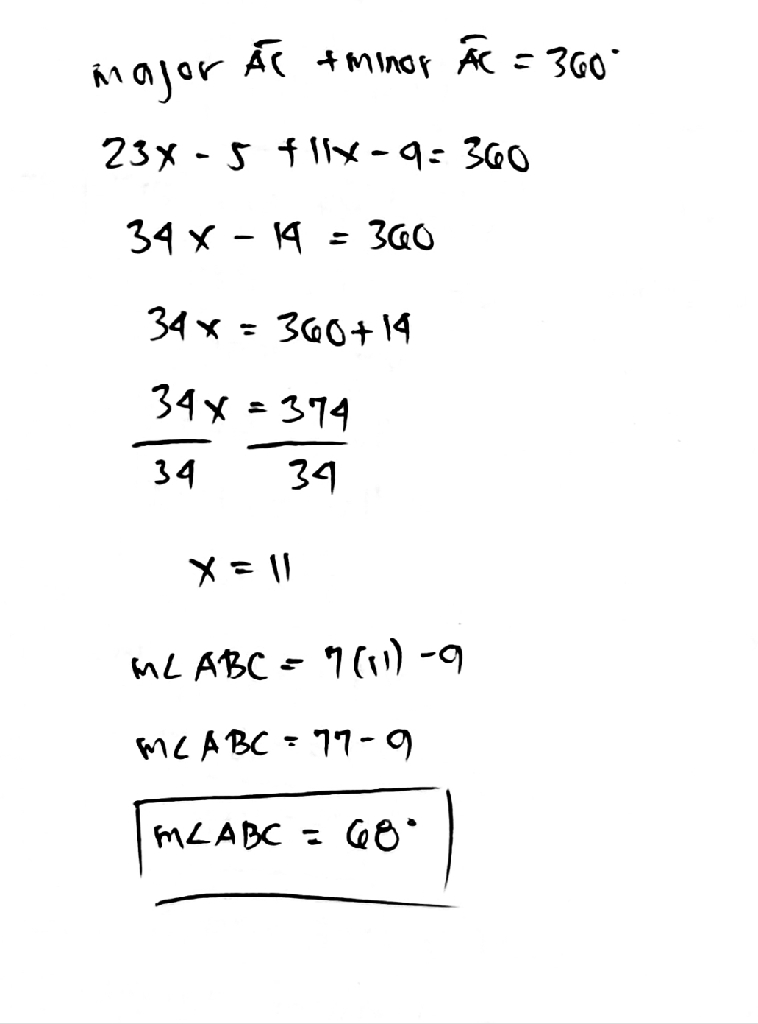 major A͞C + minor A͞C = 360°
23x - 5 + 11x - 9 = 360
34x - 14 = 360
34x = 360 + 14
34x = 374
34 34
x = 11
m∠ABC = 7(11) - 9
m∠ABC = 77 - 9
m∠ABC = 68°